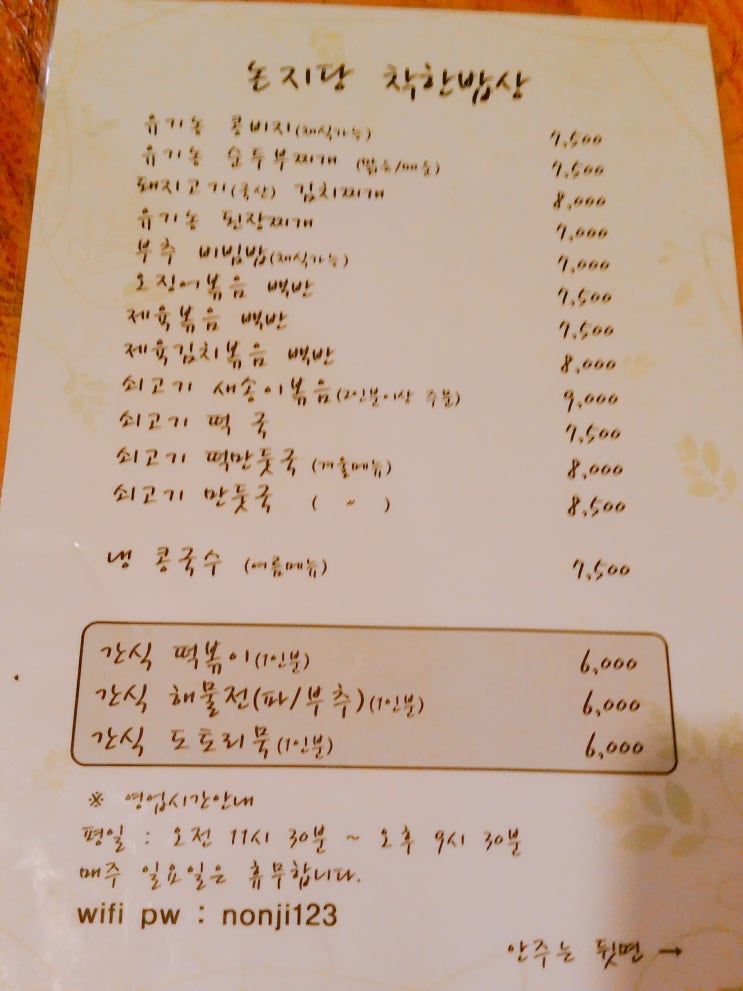 논지당 착한밥상
유기농 콩비지(채식가능) 7,500
유기농 순두부찌개 (맑음/매운) 7,500
돼지고기(국산) 김치찌개 8,000
유기농 된장찌개 7,000
부추 비빔밥(채식가능) 7,000
오징어볶음 백반 7,500
제육볶음 백반 7,500
제육김치볶음 백반 8,000
쇠고기 새송이볶음(2인분이상 주문) 9,000
쇠고기 떡국 7,500
쇠고기 떡만둣국 (겨울메뉴) 8,000
쇠고기 만둣국 ( ~ ) 8,500
냉 콩국수 (여름메뉴) 7,500
간식 떡볶이(1인분) 6,000
간식 해물전(파/부추)(1인분) 6,000
간식 도토리묵(1인분) 6,000
※ 영업시간안내
평일 : 오전 11시 30분 ~ 오후 9시 30분
매주 일요일은 휴무합니다.
wifi pw : nonji123
안주는 뒷면 →